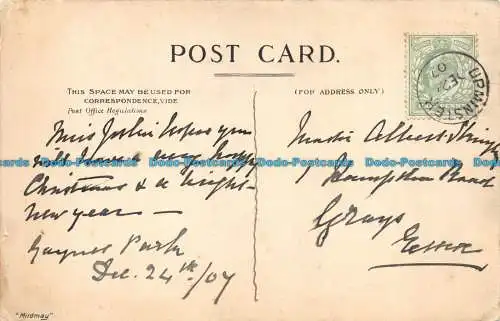 POST CARD.
THIS SPACE MAY BE USED FOR
CORRESPONDENCE, VIDE
Post Office Regulations
(FOR ADDRESS ONLY)
UPMINSTER
DE 24
07
Miss Joslin hopes you
will have a very happy
Christmas & a bright
New year —
Gaynes Park
Dec. 24th/07
Master Albert
Hampden Road
Grays
Essex
Dodo-Postcards Dodo-Postcards Dodo-Postcards Dodo-Postcards
"Mildmay"